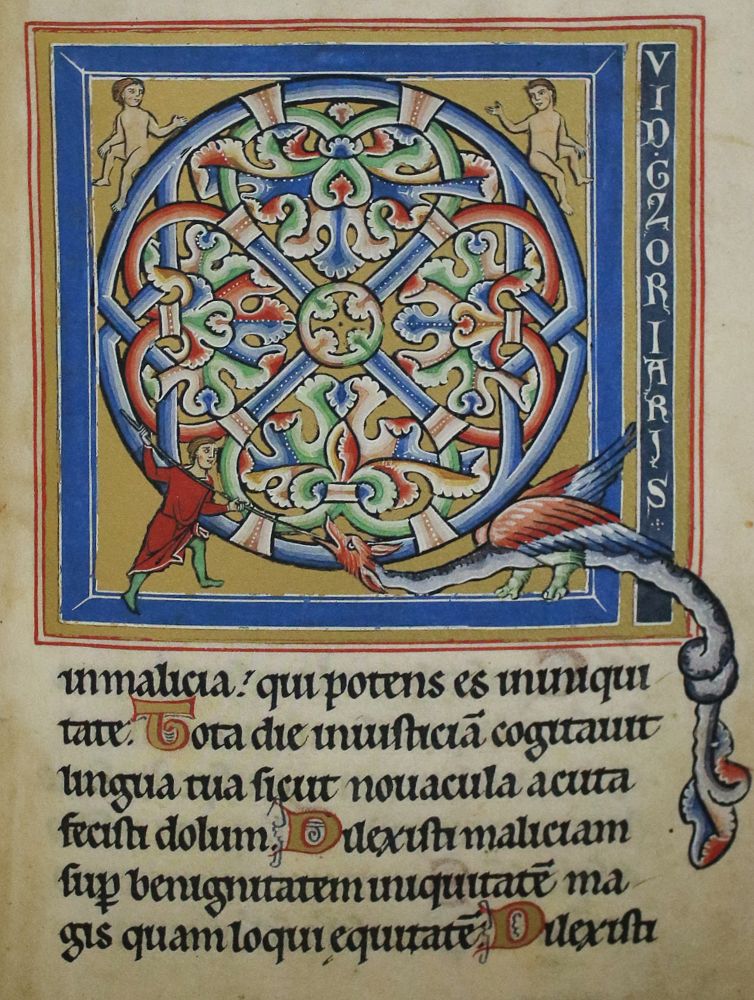 Q
VID GLORIARIS
in malicia: qui potens es in iniqui
tate. Tota die iniusticiā cogitauit
lingua tua sicut nouacula acuta
fecisti dolum. Dilexisti maliciam
sup̄ benignitatem iniquitatē ma
gis quam loqui equitatē Dilexisti